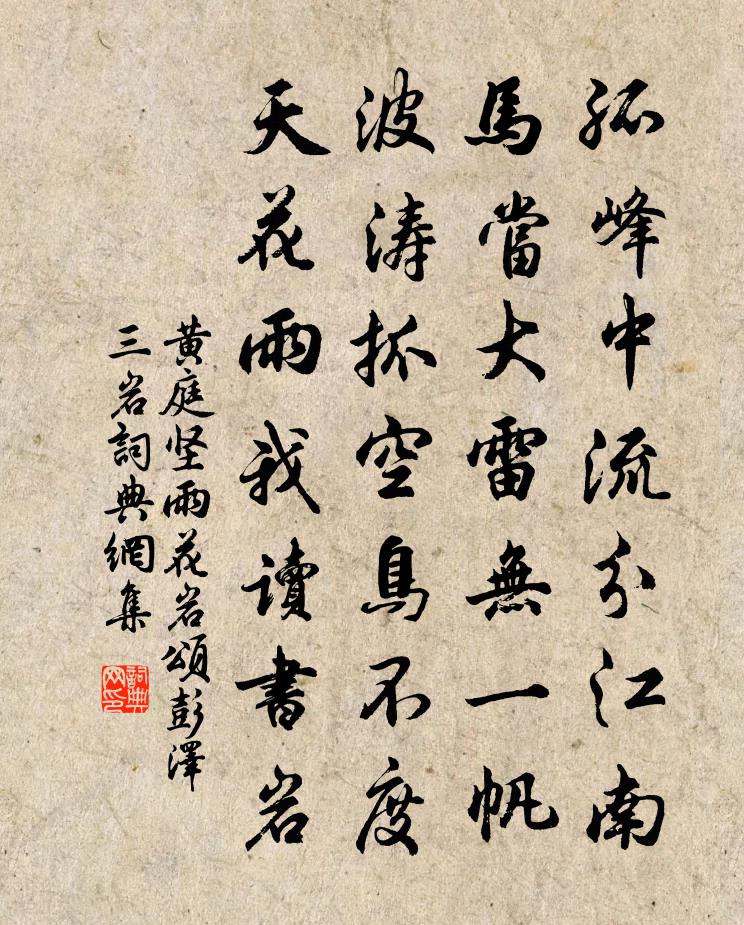 孤峰中流分江南
馬當大雷無一帆
波濤抓空鳥不度
天花雨我讀書岩
黄庭坚雨花岩頌彭澤
三岩詞典網集
詞典网印